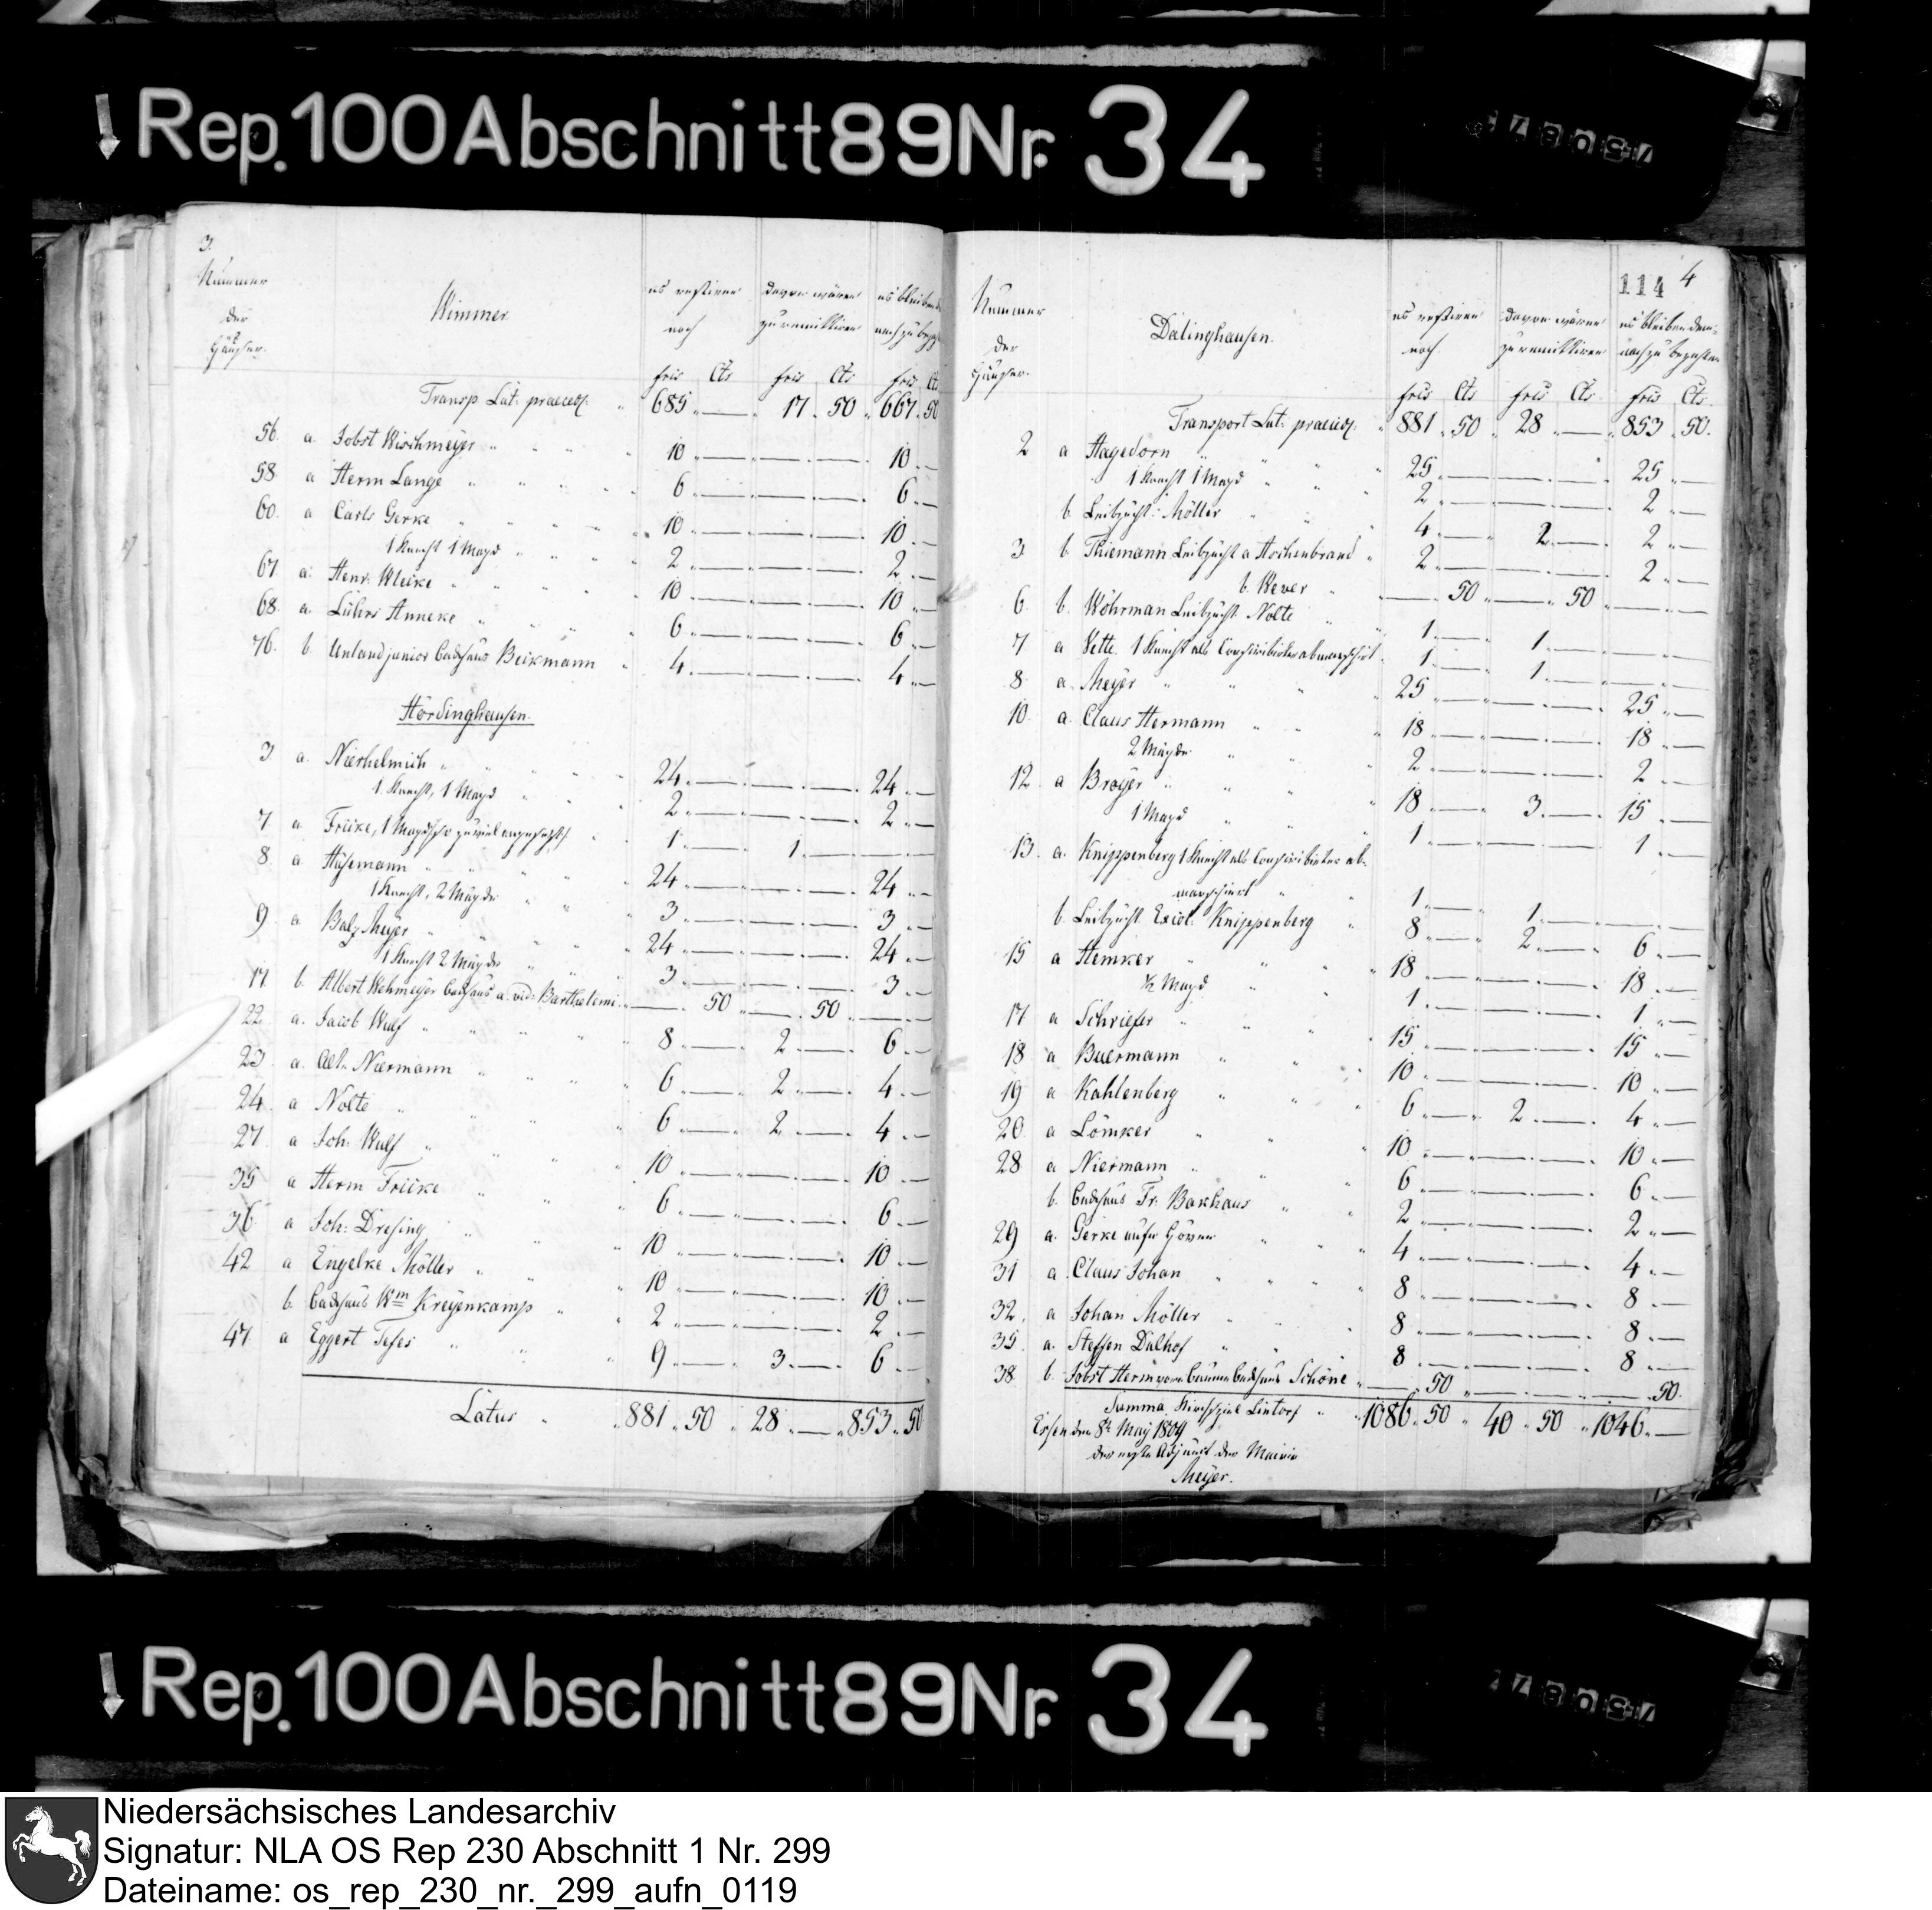 Rep. 100 Abschnitt 89 Nr. 34
3.
Nummer der Häuser.
Wimmer
es restiren noch
davon wären zu remittiren
es bleiben noch zu
frcs Cts frcs Cts frcs Cts
Transp Lat: praeced. 685 — 17 50 667 50
56. a. Jobst Wischmeyer 10 — — — 10 —
58. a Herm Lange 6 — — — 6 —
60. a Carls Gerke 10 — — — 10 —
1 Knecht 1 Magd 2 — — — 2 —
67. a. Henr. Wleke 10 — — — 10 —
68. a. Lührs Anneke 6 — — — 6 —
76. b. Unland junior Backhaus Beckmann 4 — — — 4 —
Hördinghausen.
3. a. Nierhelmich 24 — — — 24 —
1. Knecht, 1 Magd 2 — — — 2 —
7. a Fricke, 1 Magd so zuviel angesetzt 1 — 1 — — —
8. a Hüsemann 24 — — — 24 —
1 Knecht, 2 Mägde 3 — — — 3 —
9. a Balz Meyer 24 — — — 24 —
1 Knecht 2 Mägde 3 — — — 3 —
17. b. Albert Wehmeyer Backhaus a. vid. Barthelemi — 50 — 50 — —
22. a. Jacob Wulf 8 — 2 — 6 —
23. a. Alb. Niermann 6 — 2 — 4 —
24. a Nolte 6 — 2 — 4 —
27. a Joh. Wulf 10 — — — 10 —
35 a Herm Fricke 6 — — — 6 —
36. a Joh: Dresing 10 — — — 10 —
42 a Engelke Möller 10 — — — 10 —
b. Backhaus Wm Kreyenkamp 2 — — — 2 —
47 a Eggert Teses 9 — 3 — 6 —
Latus 881 50 28 — 853 50
114 4
Nummer der Häuser.
Dalinghausen.
es restiren noch
davon wären zu remittiren
es bleiben dem: nach zu bezahlen
frcs Cts frcs Cts. frcs Cts.
Transport Lat: praeced. 881 50 28 — 853 50.
2 a Hagedorn 25 — — — 25 —
1 Knecht 1 Magd 2 — — — 2 —
b. Leibzucht: Möller 4 — 2 — 2 —
3. b. Thiemann Leibzucht a Hochenbrand 2 — — — 2 —
b. Wever — 50 — 50 — —
6. b. Wöhrman Leibzucht Nolte 1 — 1 — — —
7 a Vette. 1 Knecht als Conscribirter abmarschirt 1 — 1 — — —
8 a. Meyer 25 — — — 25 —
10. a. Claus Hermann 18 — — — 18 —
2 Mägde 2 — — — 2 —
12. a Broyer 18 — 3 — 15 —
1 Magd 1 — — — 1 —
13. a. Knippenberg 1 Knecht als Conscribirter ab-
marschirt 1 — 1 — — —
b. Leibzucht. Knippenberg 8 — 2 — 6 —
15 a Hemker 18 — — — 18 —
½ Magd 1 — — — 1 —
17 a Schriefer 15 — — — 15 —
18 a Buermann 10 — — — 10 —
19 a Kahlenberg 6 — 2 — 4 —
20 a Lömker 10 — — — 10 —
28 a Niermann 6 — — — 6 —
b. Backhaus Fr: Backhaus 2 — — — 2 —
29 a. Gerke aufn 4 — — — 4 —
31 a Claus Johan 8 — — — 8 —
32. a Johan Möller 8 — — — 8 —
35. a. Steffen Dalhof 8 — — — 8 —
38 b. Jobst Herm vorn Baume Backhaus Schöne — 50 — — — 50.
Summa Kirchspiel Lintorf 1086 50 40 50 1046 —
Essen den 8t May 1809
der erste Adjunct der Mairie
Meyer.
Rep. 100 Abschnitt 89 Nr. 34
Niedersächsisches Landesarchiv
Signatur: NLA OS Rep 230 Abschnitt 1 Nr. 299
Dateiname: os_rep_230_nr._299_aufn_0119